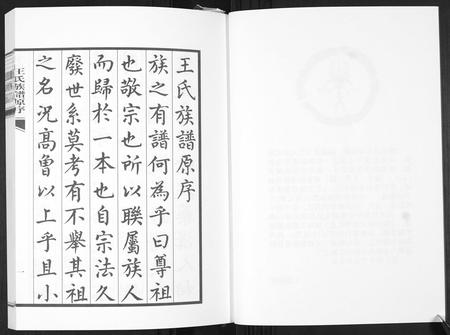 王氏族譜原序
族之有譜何為乎曰尊祖
也敬宗也所以聯屬族人
而歸於一本也自宗法久
廢世系莫考有不舉其祖
之名況高魯以上乎且小
王氏族譜原序
一